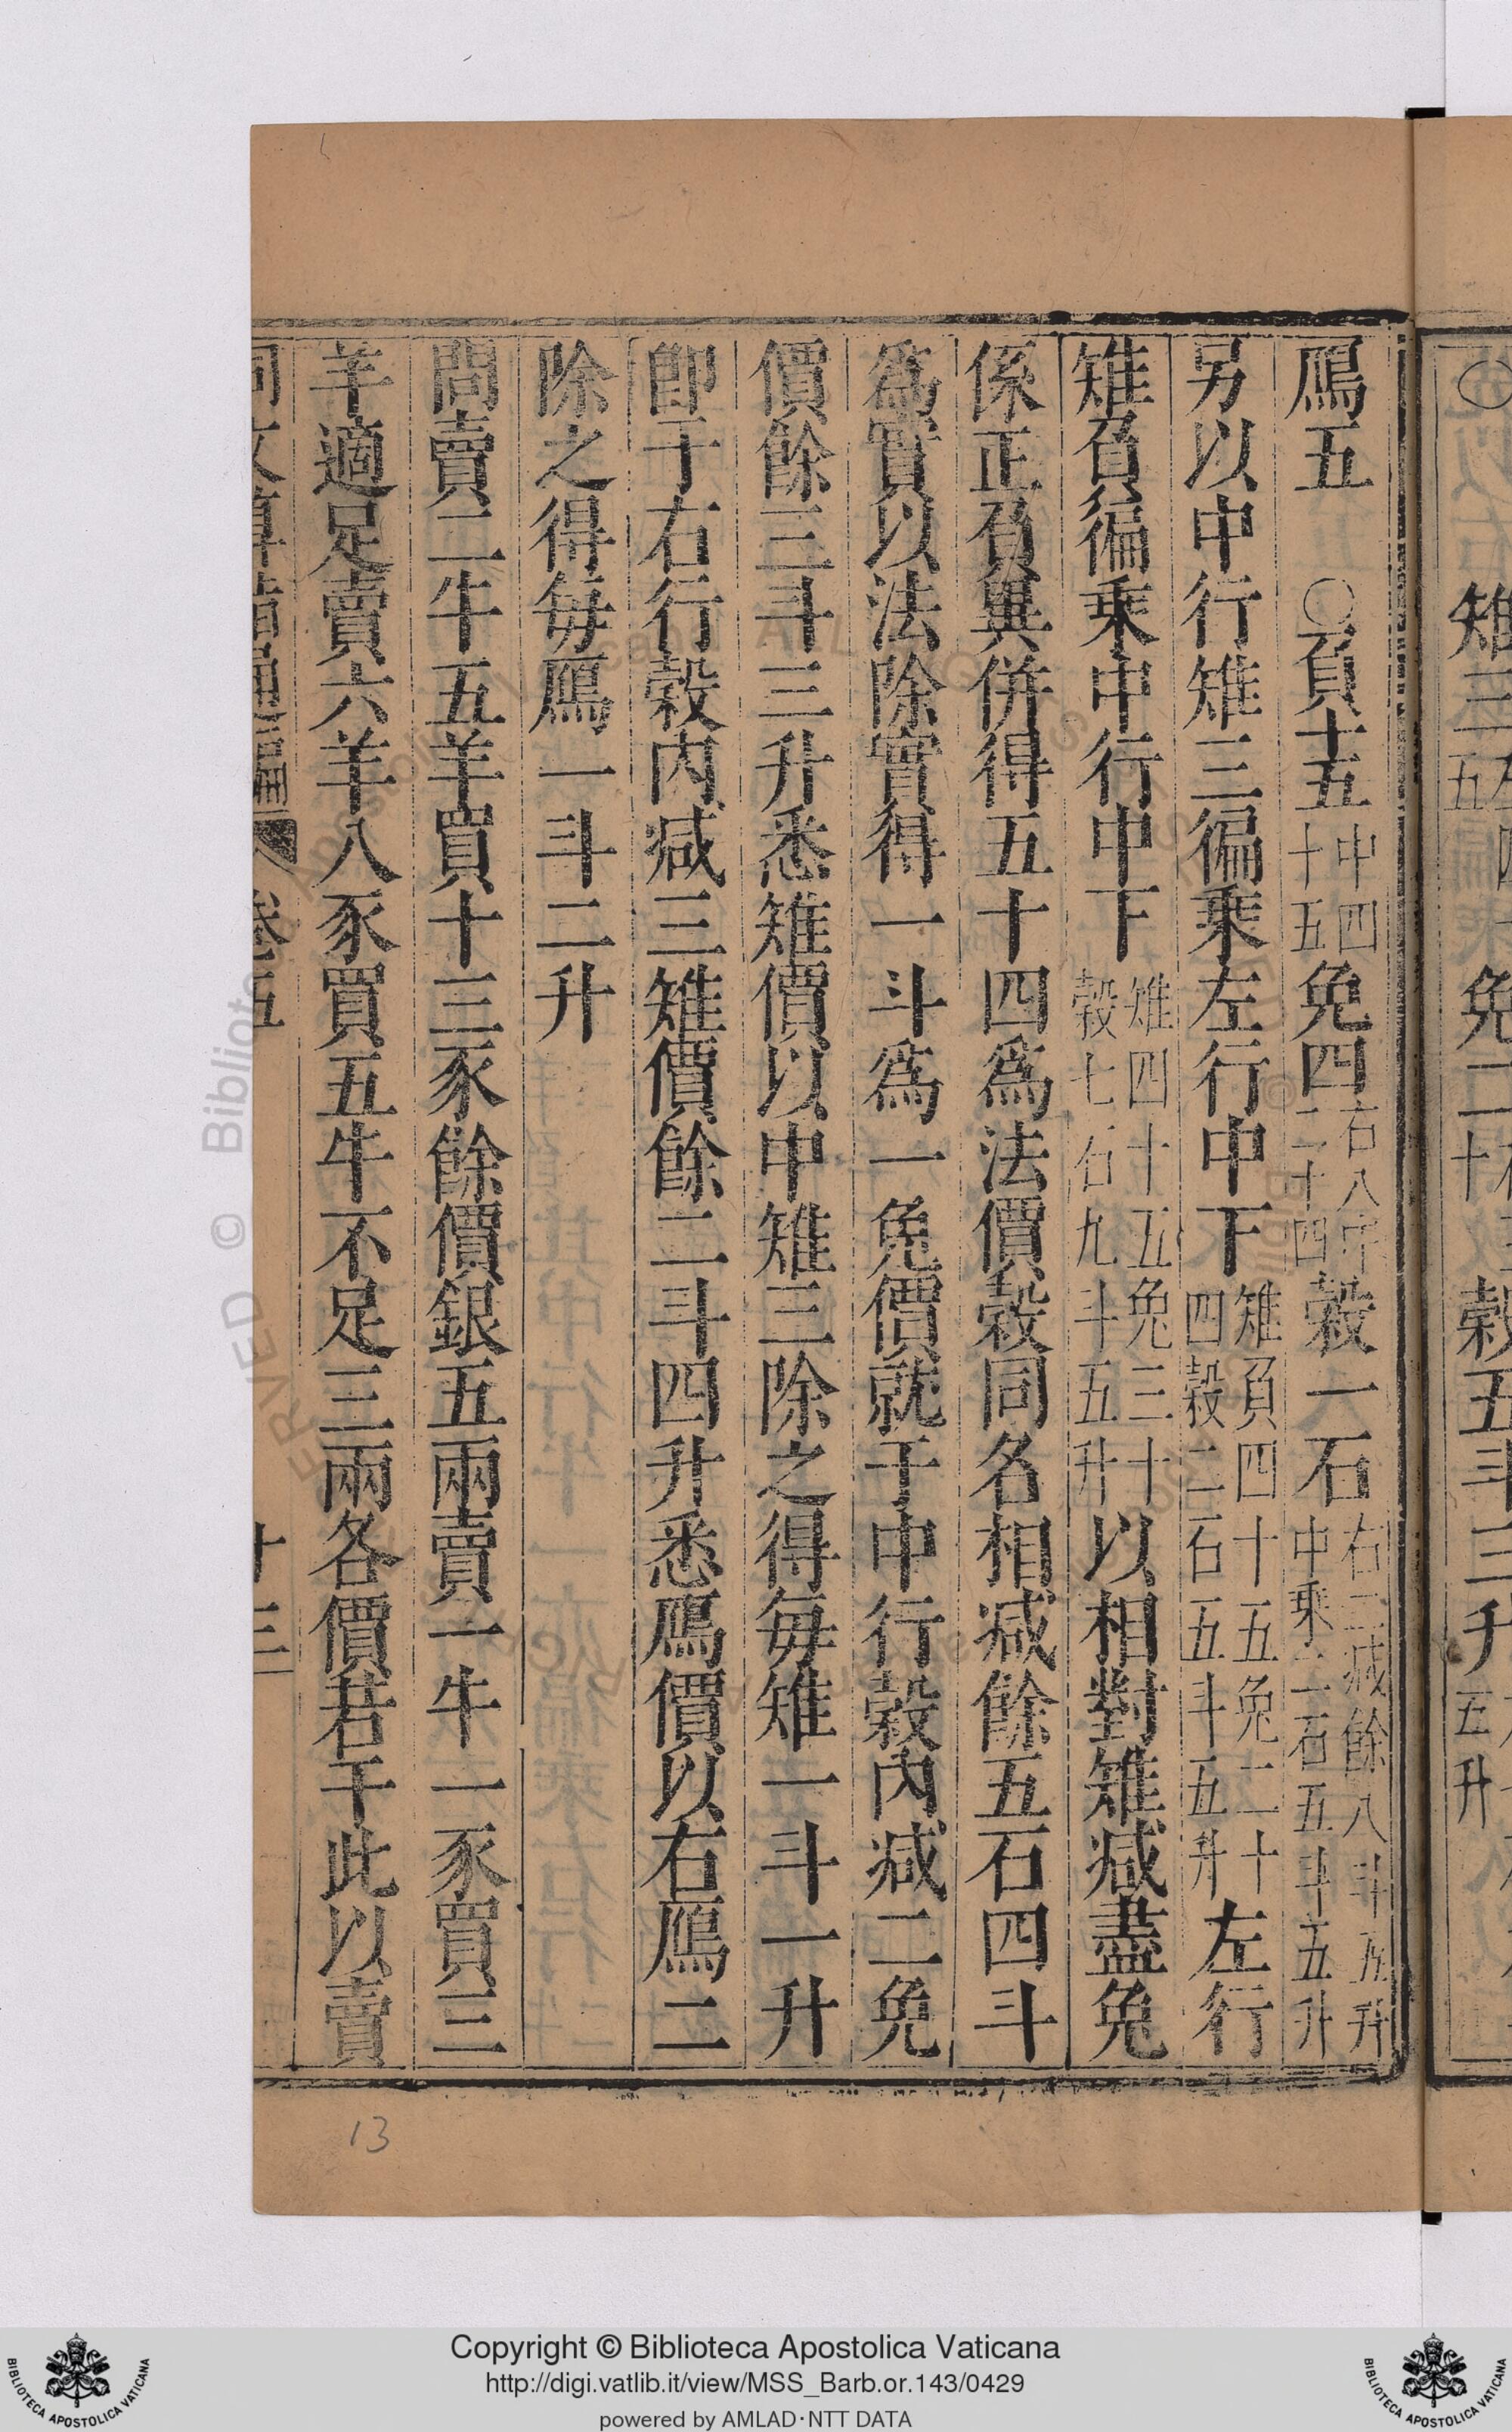 鴈五　〇負十五中四十五兔四右八中二十四穀一石右二減餘八斗五升中乘二石五斗五升
另以中行雉三徧乘左行中下雉負四十五兔二十四穀二石五斗五升左行
雉負徧乘中行中下雉四十五兔三十穀七石九斗五升以相對雉減盡兔
係正負異併得五十四為法價穀同名相減餘五石四斗
為實以法除實得一斗為一兔價就于中行穀內減二兔
價餘三斗三升悉雉價以中雉三除之得每雉一斗一升
卽于右行穀內減三雉價餘二斗四升悉鴈價以右鴈二
除之得每鴈一斗二升
問賣二牛五羊買十三豕餘價銀五兩賣一牛一豕買三
羊適足賣六羊八豕買五牛不足三兩各價若干此以賣
同文算指通編 卷五 十三
13
© Biblioteca Apostolica Vaticana
Copyright © Biblioteca Apostolica Vaticana
http://digi.vatlib.it/view/MSS_Barb.or.143/0429
powered by AMLAD·NTT DATA
BIBLIOTECA APOSTOLICA VATICANA
BIBLIOTECA APOSTOLICA VATICANA